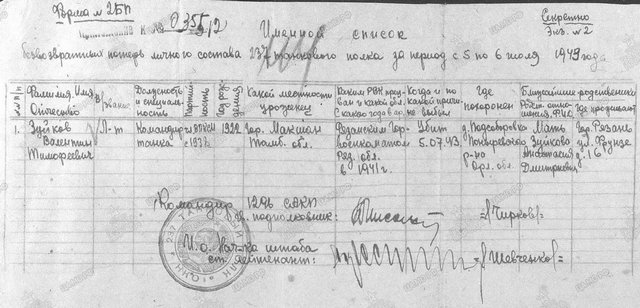 Форма №2БП
Секретно
Экз. №2
Именной список
безвозвратных потерь личного состава 237 танкового полка за период с 5 по 6 июля 1943 года
Фамилия, Имя, Отчество
звание
Должность и специальность
Партийность
Год рождения
Какой местности уроженец
Каким РВК призван и какой обл. с какого года в ар.
Когда и по какой причине выбыл
Где похоронен
Ближайшие родственники
Где проживают
1. Зуйков Валентин Тимофеевич
Л-т
Командир танка
с 1937
гор. Макшан Тамб. обл.
Рязанским Горвоенкоматом Ряз. обл. в 1941 г.
Убит 5.07.43.
д. Подсоборовка Поныревского р-на Орл. обл.
Мать Зуйкова Анастасия Дмитриевна
гор. Рязань ул. Фрунзе д. 16
Командир
подполковник:
=/Чирков/=
И.о. Нач-ка штаба
ст. лейтенант:
=/Шевченко/=